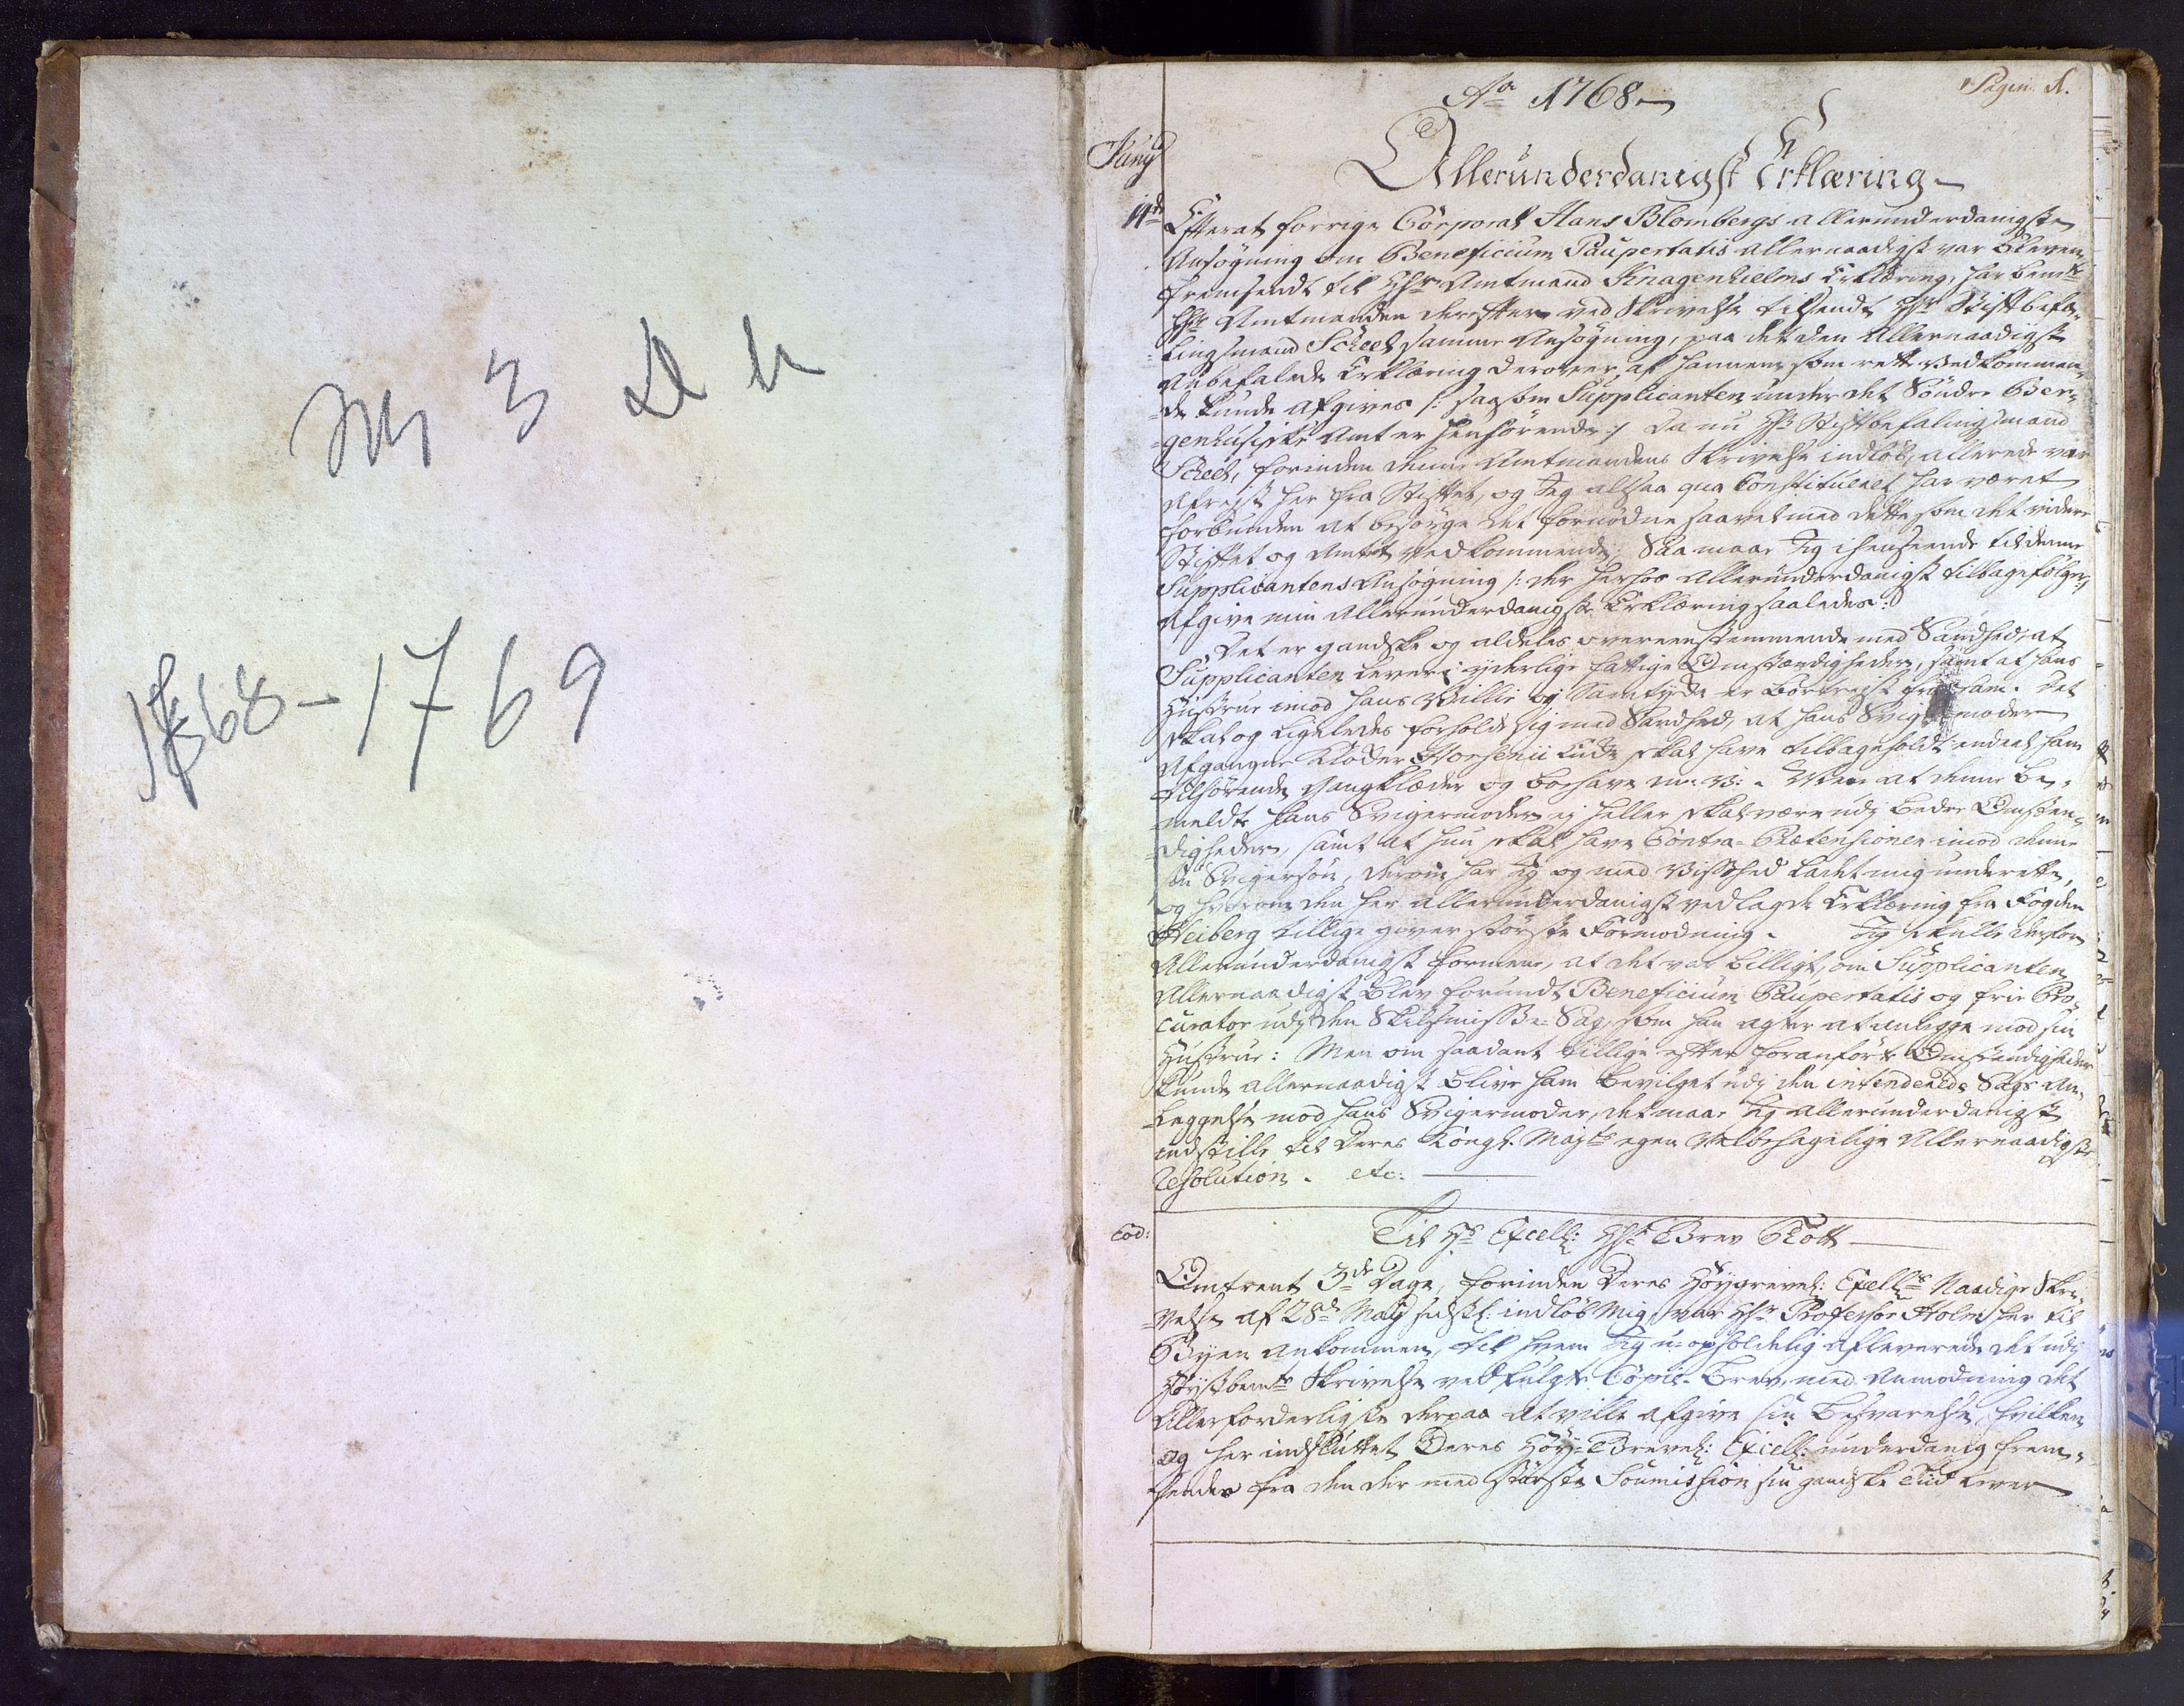 No 3 D b
1768-1769
Ao 1768
Pagin 1.
Junij
Allerunderdanigst Erklæring
14de Efterat forrige Corporal Hans Blombergs allerunderdanigste
Ansøgning om Beneficium Paupertatis allernaadigst var bleven
fremsendt til Hr Amtmand Knagenhielms Erklæring, har bemte
Hr Amtmanden derefter ved Skrivelse tilsendt Hr Stiftbefa-
lingsmand Scheel samme Ansøgning, paa det den Allernaadigst
Anbefalede Erklæring derover, af hannem som rette Vedkommen-
de kunde afgives /: saasom Supplicanten under det Søndre Ber-
genhusiske Amt er henhørende :/ Da nu Hr Stiftbefalingsmand
Scheel, forinden denne Amtmandens Skrivelse indløb, allerede var
afreist her fra Stiftet, og Jeg altsaa qua Constitueret har været
forbunden at besørge det fornødne saavel med dette som det videre
Stiftet og Amtet vedkommende; Saa maae Jeg i henseende til denne
Supplicantens Ansøgning /: der herhos allerunderdanigst tilbagefølger :/
afgive min Allerunderdanigste Erklæring saaledes:
Det er gandske og aldeles overeenstemmende med Sandhed, at
Supplicanten lever i yderlige fattige Omstændigheder, samt at hans
Hustrue imod hans Villie og Samtykke er bortreist fra ham. Det
skal og ligeledes forholde sig med Sandhed, at hans Svigermoder
Afgangne Klokker Horsenii Enke skal have tilbageholdt endeel ham
tilhørende Gangklæder og Boehave m: v: . Men at denne be-
meldte hans Svigermoder ej heller skal være udj bedre Omstæn-
digheder, samt at hun skal have Contra-Prætensioner imod denne
sin Svigersøn, derom har Jeg og med Vished ladet mig underrette,
og hvorom den her allerunderdanigst vedlagde Erklæring fra Fogden
Heiberg tillige giver største Formodning. Jeg skulle derfor
Allerunderdanigst formene, at det var billigt, om Supplicanten
Allernaadigst blev forundt Beneficium Paupertatis og frie Pro-
curator udj den Skilsmisse-Sag, som han agter at anlegge mod sin
Hustrue: Men om saadant tillige efter foranførte Omstændigheder
kunde allernaadigst blive ham bevilget udj den intenderede Sags An-
leggelse mod hans Svigermoder, det maae Jeg allerunderdanigst
indstille til Deres Kongl. Majts egen Velbehagelige Allernaadigste
Resolution. etc:
Eod:
Til Hs Excell: Hr Grev Thott
Omtrent 3de Dage, forinden Deres Høygrevel: Excell: Naadige Skri-
velse af 28de Maij sidstl: indløb Mig, var Hr Professor Holm her til
Byen ankommen, til hvem Jeg uopholdelig afleverede det udj
høystbemte Skrivelse vedfulgte Copie-Brev, med Anmodning det
Allerforderligste derpaa at ville afgive sin Besvarelse, hvilken
og her indsluttet Deres Høy-Grevel: Excell: underdanig frem-
sendes fra den der med største Soumission sin gandske Tiid lever